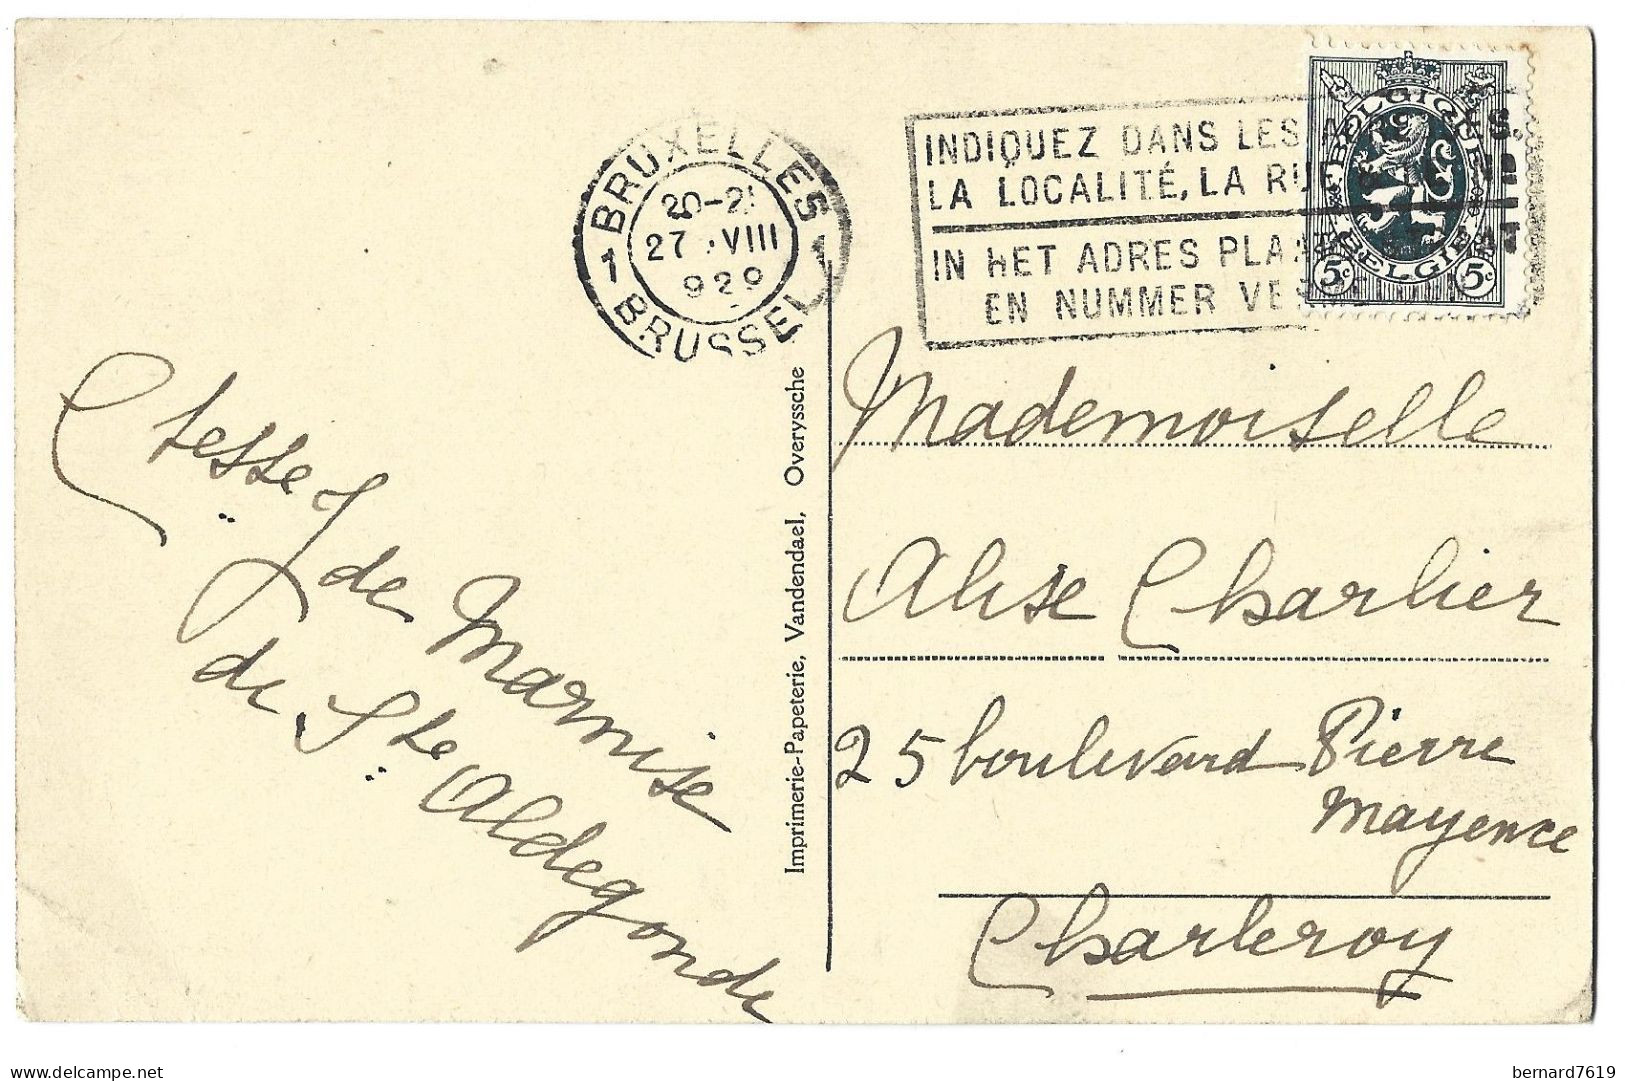 BRUXELLES
1 1
20-21
27 VIII
929
BRUSSEL
INDIQUEZ DANS LES
LA LOCALITÉ, LA RU
IN HET ADRES PLA
EN NUMMER VE
BELGIQUE
BELGIË
5c 5c
Ctesse J. de Marnise
de Ste Aldegonde
Imprimerie-Papeterie, Vandendael, Overyssche
Mademoiselle
Alise Charlier
25 boulevard Pierre
Mayence
Charleroy
bernard7619